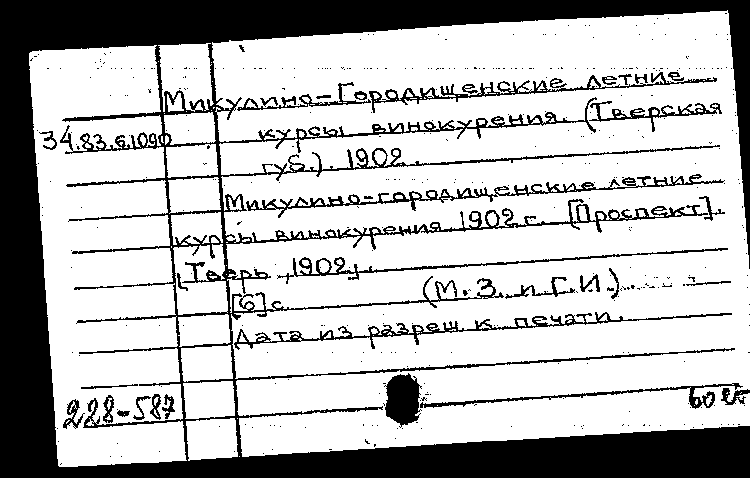 Микулино-Городищенские летние
34.83.6.1090 курсы винокурения. (Тверская
губ.). 1902.
Микулино-городищенские летние
курсы винокурения 1902 г. [Проспект].
[Тверь, 1902].
[6] с. (М.З. и Г.И.)
Дата из разреш к печати.
228-587